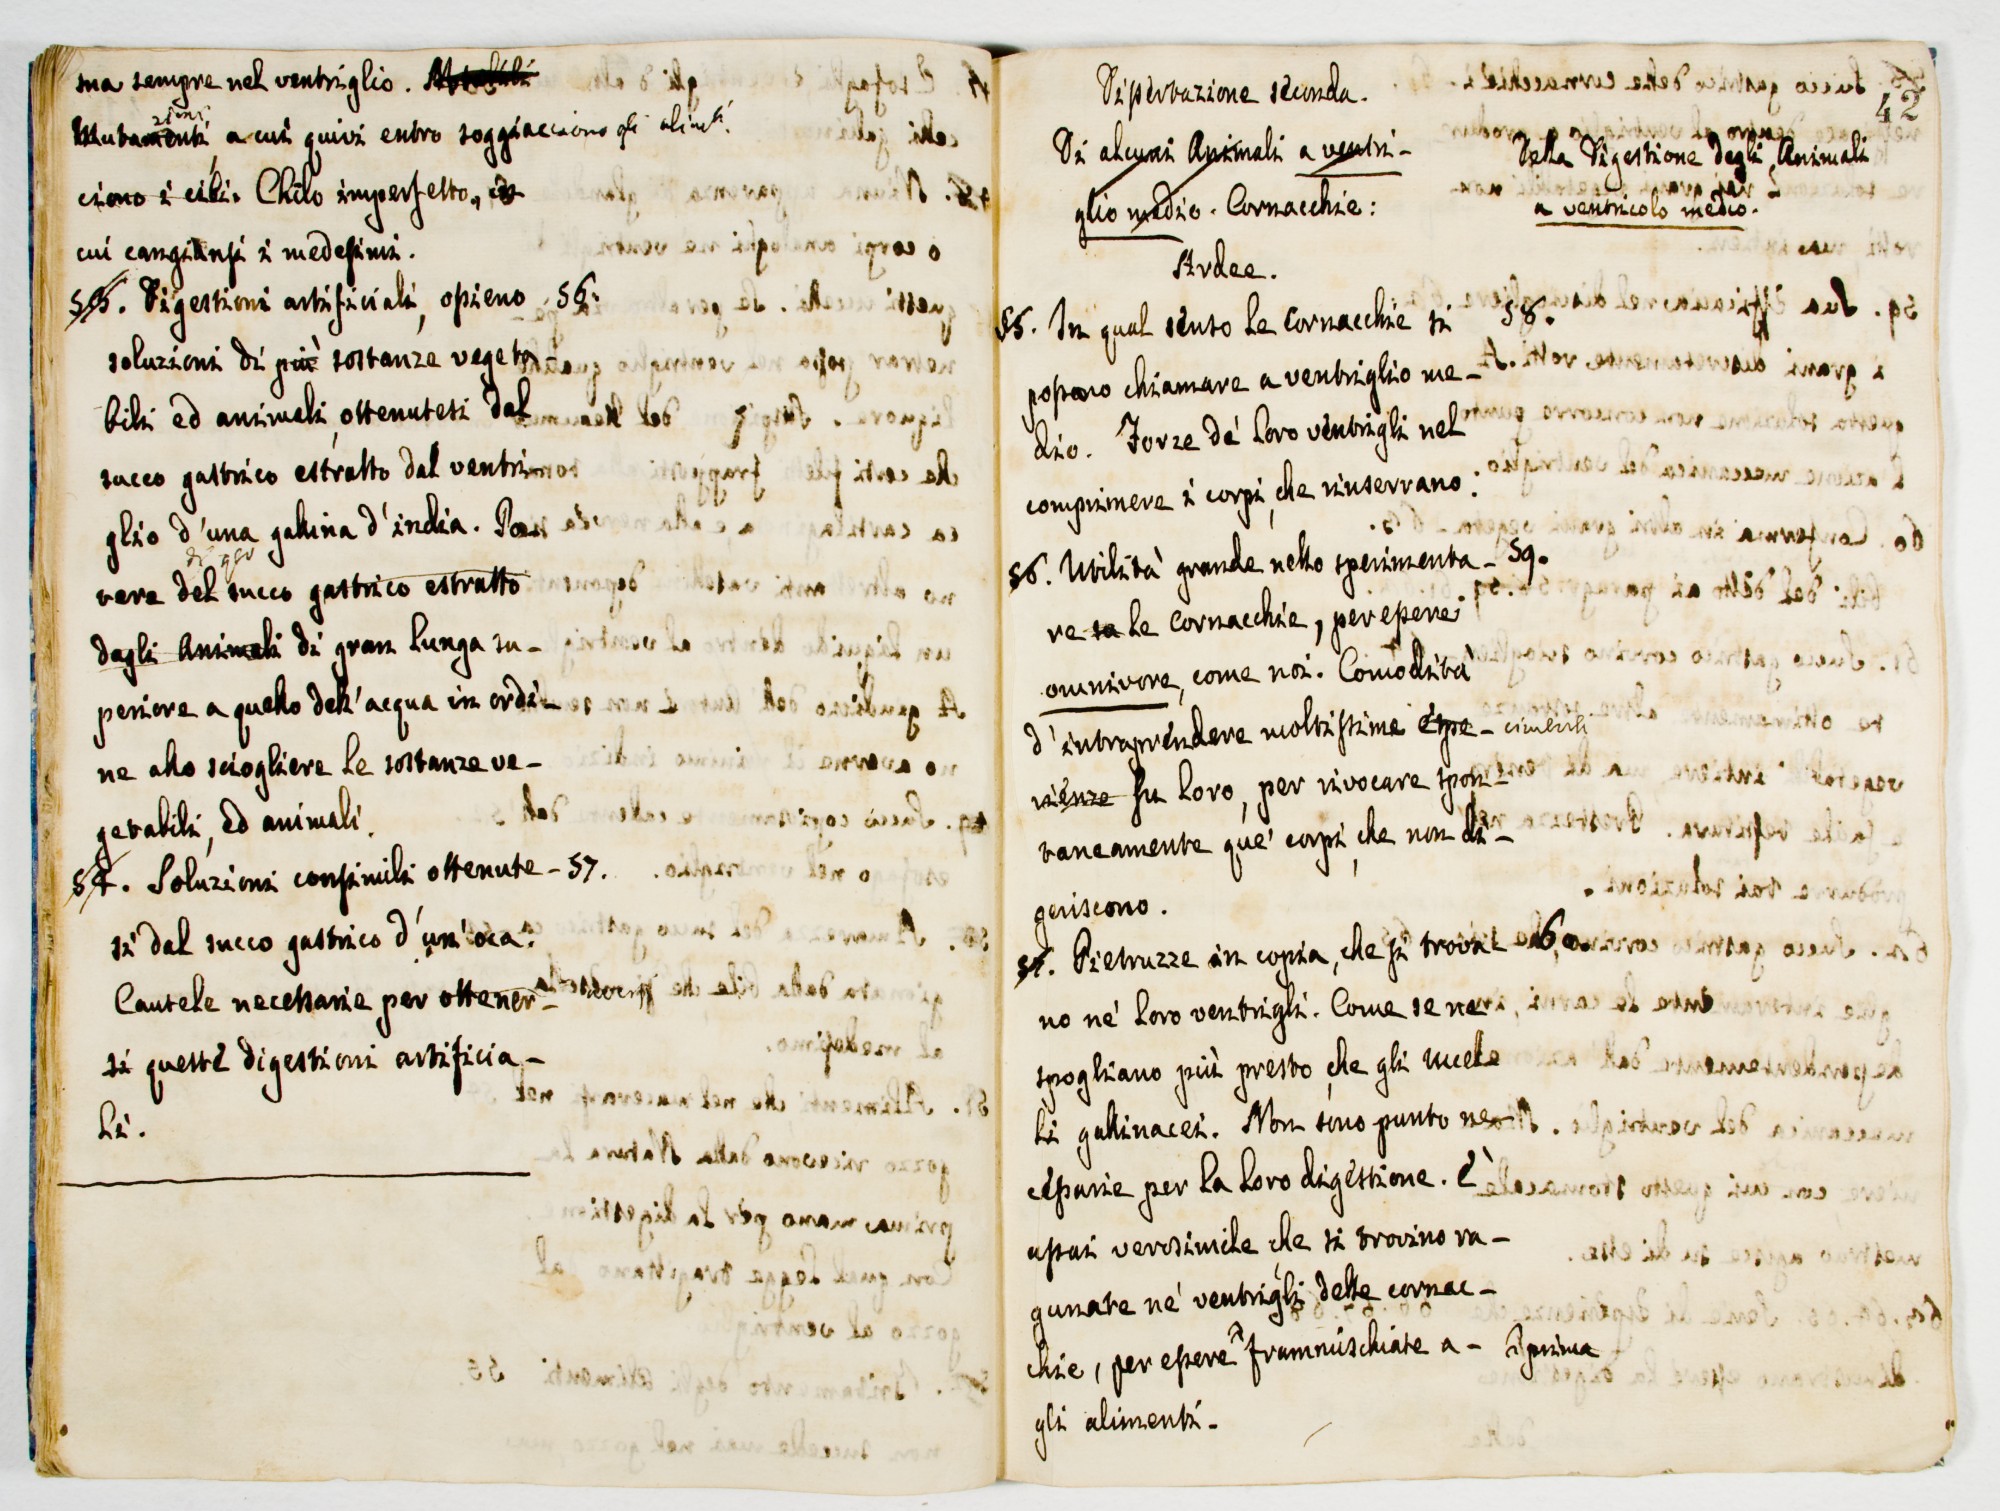 ma sempre nel ventriglio.
zioni
Mutamenti a cui quivi entro soggiacciono gli alimti.
ciono i cibi. Chilo imperfetto, in
cui cangiansi i medesimi.
55. Digestioni artificiali, ossieno 56.
soluzioni di più sostanze vegeta
bili ed animali ottenutesi dal
succo gastrico estratto dal ventri
glio d'una gallina d'india. Po
vere del succo gastrico estratto
dagli Animali di gran lunga su-
periore a quello dell'acqua in ordi-
ne allo sciogliere le sostanze ve-
getabili, ed animali.
54. Soluzioni consimili ottenute- 57.
si dal succo gastrico d'un'oca.
Cautele necessarie per ottener-
si queste digestioni artificia-
li.
42
Dissertazione seconda.
Di alcuni Animali a ventri-
glio medio. Cornacchie:
Ardee.
Della Digestione degli Animali
a ventricolo medio.
55. In qual senso le Cornacchie si 58.
possano chiamare a ventriglio me-
dio. Forze de' loro ventrigli nel
comprimere i corpi, che rinserrano.
56. Utilità grande nello sperimenta- 59.
re su le Cornacchie, per essere
omnivore, come noi. Comodità
d'intraprendere moltissime espe- cimenti
rienze su loro, per rivocare spon-
taneamente que' corpi, che non di-
geriscono.
57. Pietruzze in copia, che si trova 60.
no ne' loro ventrigli. Come se ne
spogliano più presto che gli uccel
li gallinacei. Non sono punto ne-
cessarie per la loro digestione. È
assai verosimile, che si trovino ra-
gunate ne' ventrigli delle cornac-
chie, per essere frammischiate a- prima
gli alimenti-